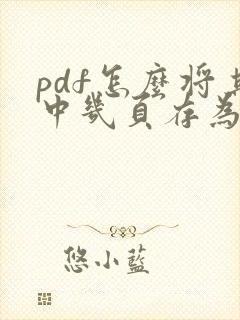 pdf怎麼将其
中幾頁存為
悠小藍